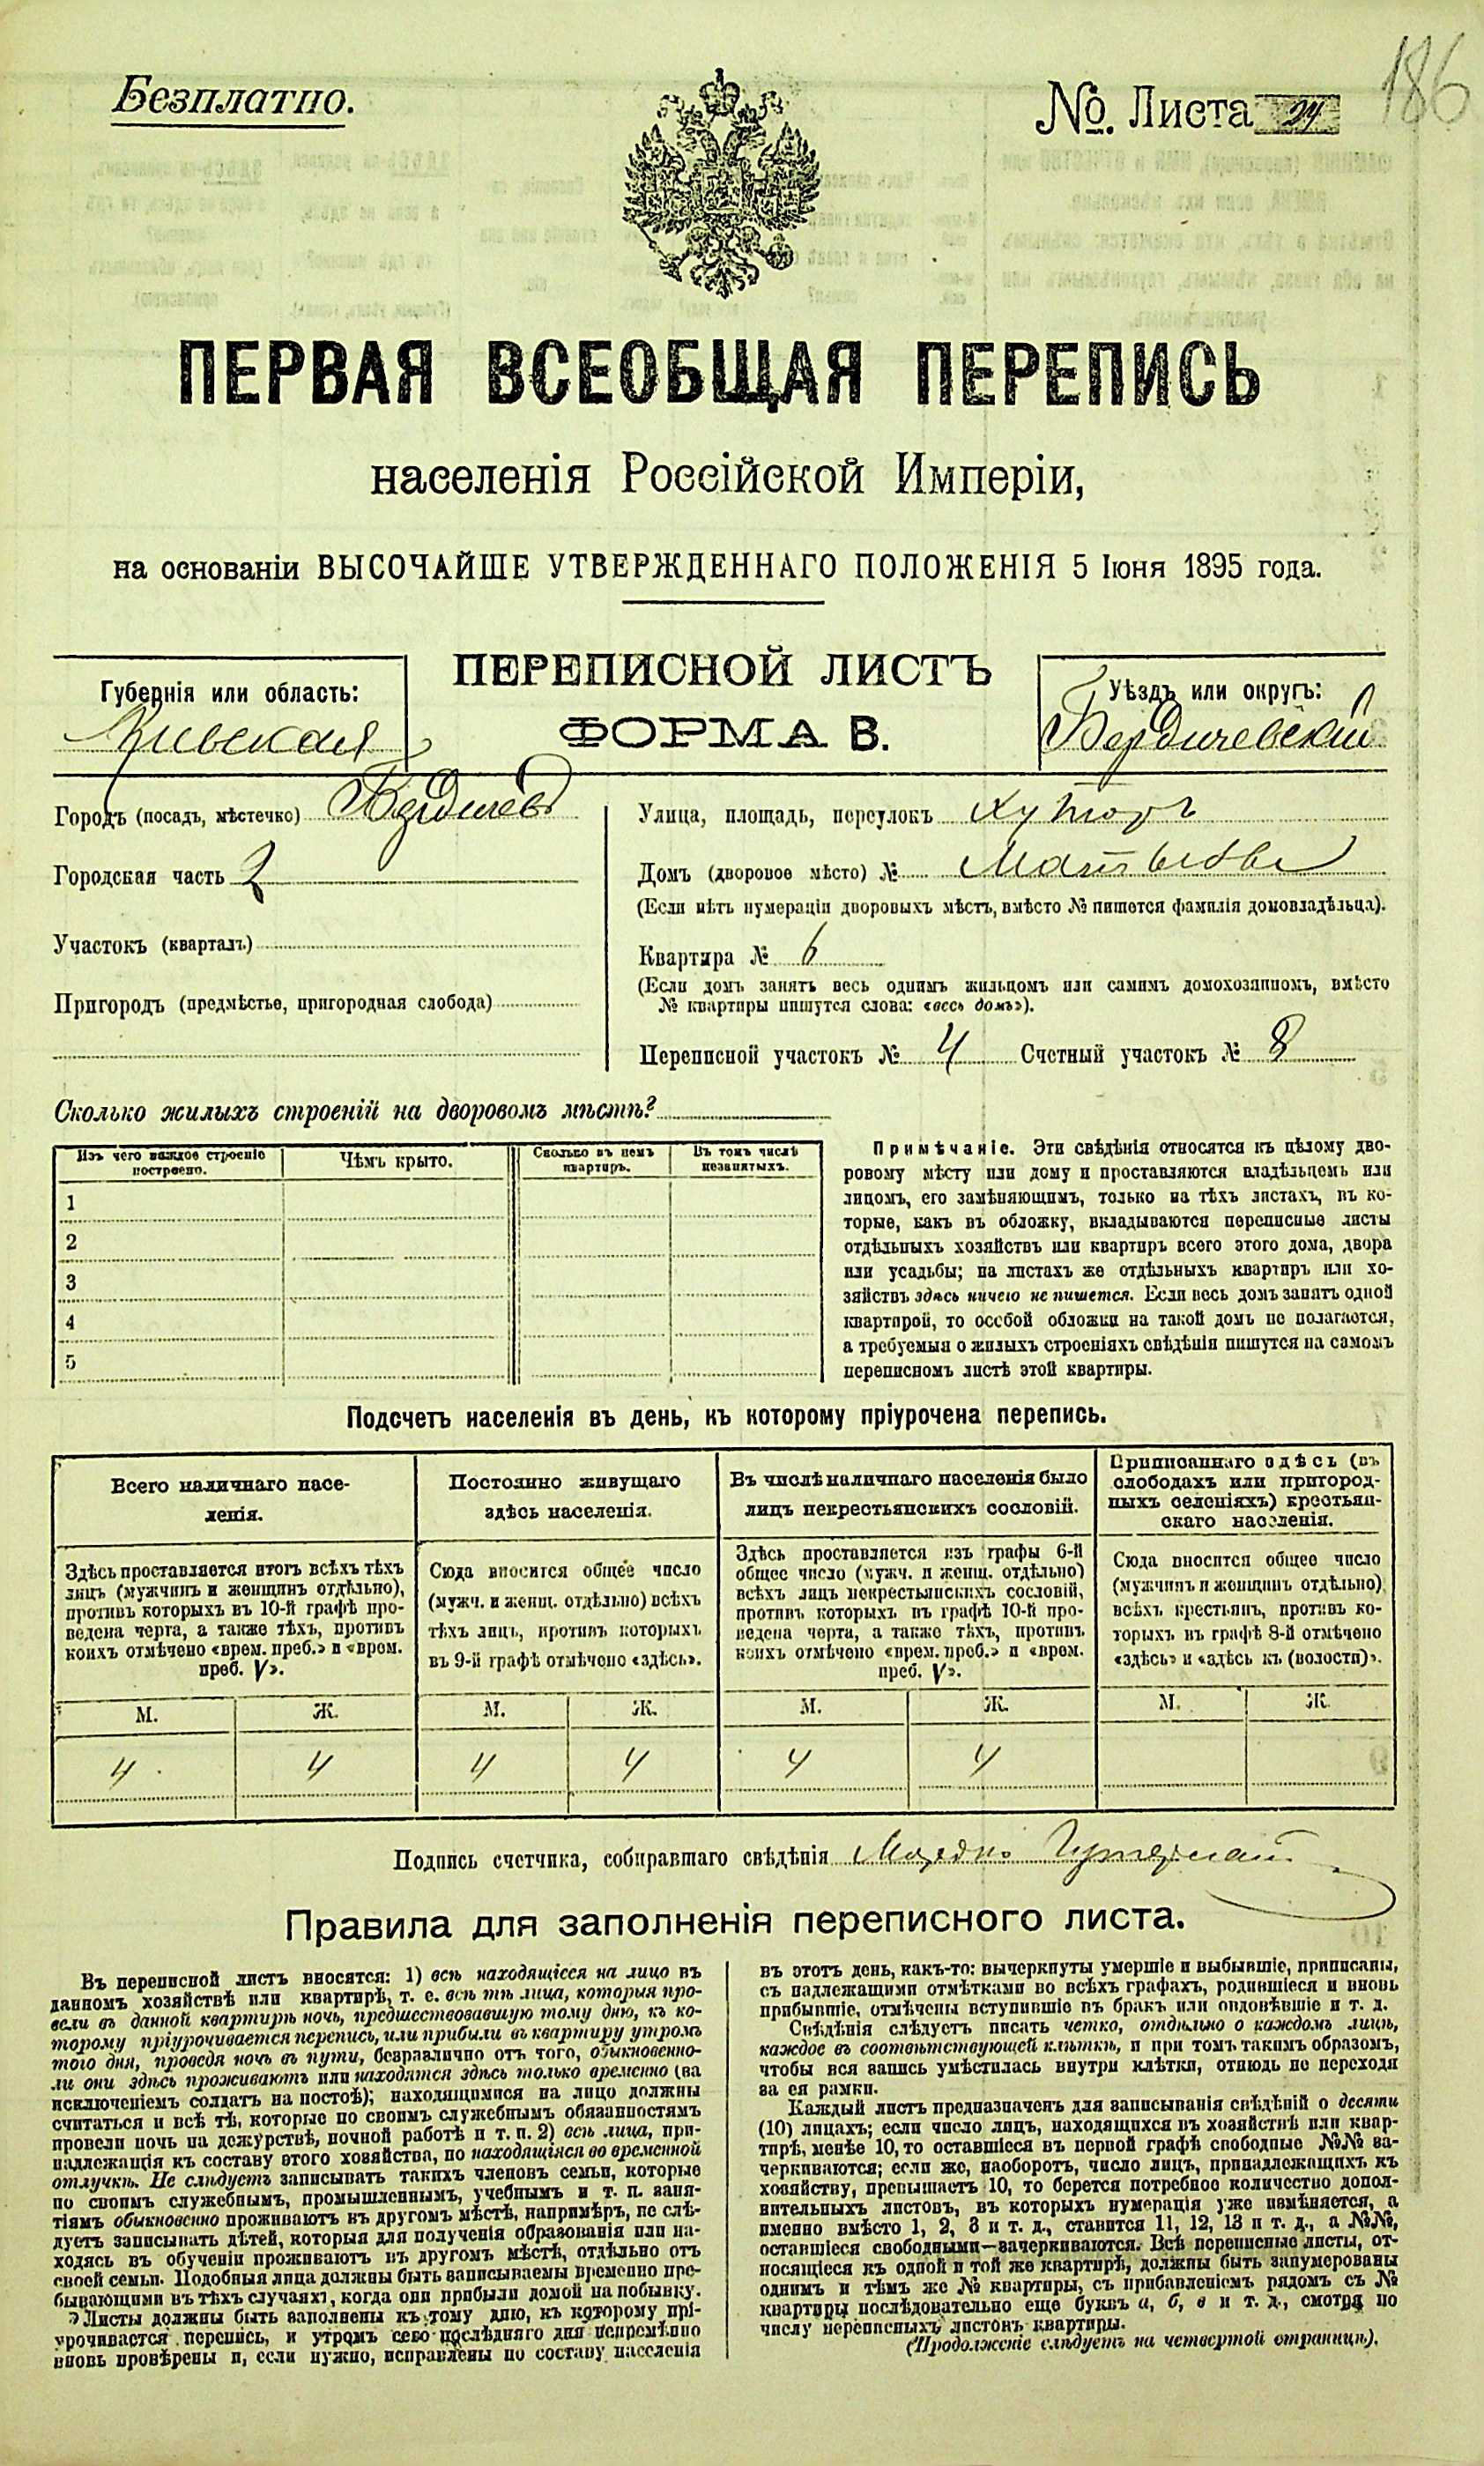 Безплатно.
№. Листа 24
186
ПЕРВАЯ ВСЕОБЩАЯ ПЕРЕПИСЬ
населенія Россійской Имперіи,
на основаніи ВЫСОЧАЙШЕ УТВЕРЖДЕННАГО ПОЛОЖЕНІЯ 5 Іюня 1895 года.
Губернія или область:
Кіевская
ПЕРЕПИСНОЙ ЛИСТЪ
ФОРМА В.
Уѣздъ или округъ:
Бердичевскій
Городъ (посадъ, мѣстечко) Бердичевъ
Городская часть 2
Участокъ (кварталъ)
Пригородъ (предмѣстье, пригородная слобода)
Улица, площадь, переулокъ Хуторъ
Домъ (дворовое мѣсто) №
(Если нѣтъ нумераціи дворовыхъ мѣстъ, вмѣсто № пишется фамилія домовладѣльца).
Квартира № 6
(Если домъ занятъ весь однимъ жильцомъ или самимъ домохозяиномъ, вмѣсто
№ квартиры пишутся слова: «весь домъ»).
Переписной участокъ № 4 Счетный участокъ № 8
Сколько жилыхъ строеній на дворовомъ мѣстѣ?
Изъ чего каждое строеніе построено.
Чѣмъ крыто.
Сколько въ немъ квартиръ.
Въ томъ числѣ незанятыхъ.
1
2
3
4
5
Примѣчаніе. Эти свѣдѣнія относятся къ цѣлому дво-
ровому мѣсту или дому и проставляются владѣльцемъ или
лицомъ, его замѣняющимъ, только на тѣхъ листахъ, въ ко-
торые, какъ въ обложку, вкладываются переписные листы
отдѣльныхъ хозяйствъ или квартиръ всего этого дома, двора
или усадьбы; на листахъ же отдѣльныхъ квартиръ или хо-
зяйствъ здѣсь ничего не пишется. Если весь домъ занятъ одной
квартирой, то особой обложки на такой домъ не полагается,
а требуемыя о жилыхъ строеніяхъ свѣдѣнія пишутся на самомъ
переписномъ листѣ этой квартиры.
Подсчетъ населенія въ день, къ которому пріурочена перепись.
Всего наличнаго насе-
ленія.
Постоянно живущаго
здѣсь населенія.
Въ числѣ наличнаго населенія было
лицъ некрестьянскихъ сословій.
Приписаннаго здѣсь (въ
слободахъ или пригород-
ныхъ селеніяхъ) крестьян-
скаго населенія.
Здѣсь проставляется итогъ всѣхъ тѣхъ
лицъ (мужчинъ и женщинъ отдѣльно),
противъ которыхъ въ 10-й графѣ про-
ведена черта, а также тѣхъ, противъ
коихъ отмѣчено «врем. преб.» и «врем.
преб. V».
Сюда вносится общее число
(мужч. и женщ. отдѣльно) всѣхъ
тѣхъ лицъ, противъ которыхъ
въ 9-й графѣ отмѣчено «здѣсь».
Здѣсь проставляется изъ графы 6-й
общее число (мужч. и женщ. отдѣльно)
всѣхъ лицъ некрестьянскихъ сословій,
противъ которыхъ въ графѣ 10-й про-
ведена черта, а также тѣхъ, противъ
коихъ отмѣчено «врем. преб.» и «врем.
преб. V».
Сюда вносится общее число
(мужчинъ и женщинъ отдѣльно)
всѣхъ крестьянъ, противъ ко-
торыхъ въ графѣ 8-й отмѣчено
«здѣсь» и «здѣсь къ (волости)».
М. Ж. М. Ж. М. Ж. М. Ж.
4 4 4 4 4 4
Подпись счетчика, собиравшаго свѣдѣнія
Правила для заполненія переписного листа.
Въ переписной листъ вносятся: 1) всѣ находящіеся на лицо въ
данномъ хозяйствѣ или квартирѣ, т. е. всѣ тѣ лица, которыя про-
вели въ данной квартирѣ ночь, предшествовавшую тому дню, къ ко-
торому пріурочивается перепись, или прибыли въ квартиру утромъ
того дня, проведя ночь въ пути, безразлично отъ того, обыкновенно-
ли они здѣсь проживаютъ или находятся здѣсь только временно (за
исключеніемъ солдатъ на постоѣ); находящимися на лицо должны
считаться и всѣ тѣ, которые по своимъ служебнымъ обязанностямъ
провели ночь на дежурствѣ, ночной работѣ и т. п. 2) всѣ лица, при-
надлежащія къ составу этого хозяйства, но находящіяся во временной
отлучкѣ. Не слѣдуетъ записывать такихъ членовъ семьи, которые
по своимъ служебнымъ, промышленнымъ, учебнымъ и т. п. заня-
тіямъ обыкновенно проживаютъ въ другомъ мѣстѣ, напримѣръ, не слѣ-
дуетъ записывать дѣтей, которыя для полученія образованія или на-
ходясь въ обученіи проживаютъ въ другомъ мѣстѣ, отдѣльно отъ
своей семьи. Подобныя лица должны быть записываемы временно пре-
бывающими въ тѣхъ случаяхъ, когда они прибыли домой на побывку.
Листы должны быть заполнены къ тому дню, къ которому прі-
урочивается перепись, и утромъ сего послѣдняго дня непремѣнно
вновь провѣрены и, если нужно, исправлены по составу населенія
въ этотъ день, какъ-то: вычеркнуты умершіе и выбывшіе, приписаны,
съ надлежащими отмѣтками во всѣхъ графахъ, родившіеся и вновь
прибывшіе, отмѣчены вступившіе въ бракъ или овдовѣвшіе и т. д.
Свѣдѣнія слѣдуетъ писать четко, отдѣльно о каждомъ лицѣ,
каждое въ соотвѣтствующей клѣткѣ, и при томъ такимъ образомъ,
чтобы вся запись умѣстилась внутри клѣтки, отнюдь не переходя
за ея рамки.
Каждый листъ предназначенъ для записыванія свѣдѣній о десяти
(10) лицахъ; если число лицъ, находящихся въ хозяйствѣ или квар-
тирѣ, менѣе 10, то оставшіеся въ первой графѣ свободные №№ за-
черкиваются; если же, наоборотъ, число лицъ, принадлежащихъ къ
хозяйству, превышаетъ 10, то берется потребное количество допол-
нительныхъ листовъ, въ которыхъ нумерація уже измѣняется, а
именно вмѣсто 1, 2, 3 и т. д., ставится 11, 12, 13 и т. д., а №№,
оставшіеся свободными—зачеркиваются. Всѣ переписные листы, от-
носящіеся къ одной и той же квартирѣ, должны быть занумерованы
однимъ и тѣмъ же № квартиры, съ прибавленіемъ рядомъ съ №
квартиры послѣдовательно еще буквъ а, б, в и т. д., смотря по
числу переписныхъ листовъ квартиры.
(Продолженіе слѣдуетъ на четвертой страницѣ).